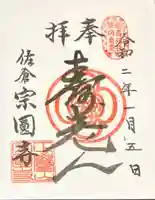 奉拝
令和二年一月五日
寿老人
佐倉
宗圓寺